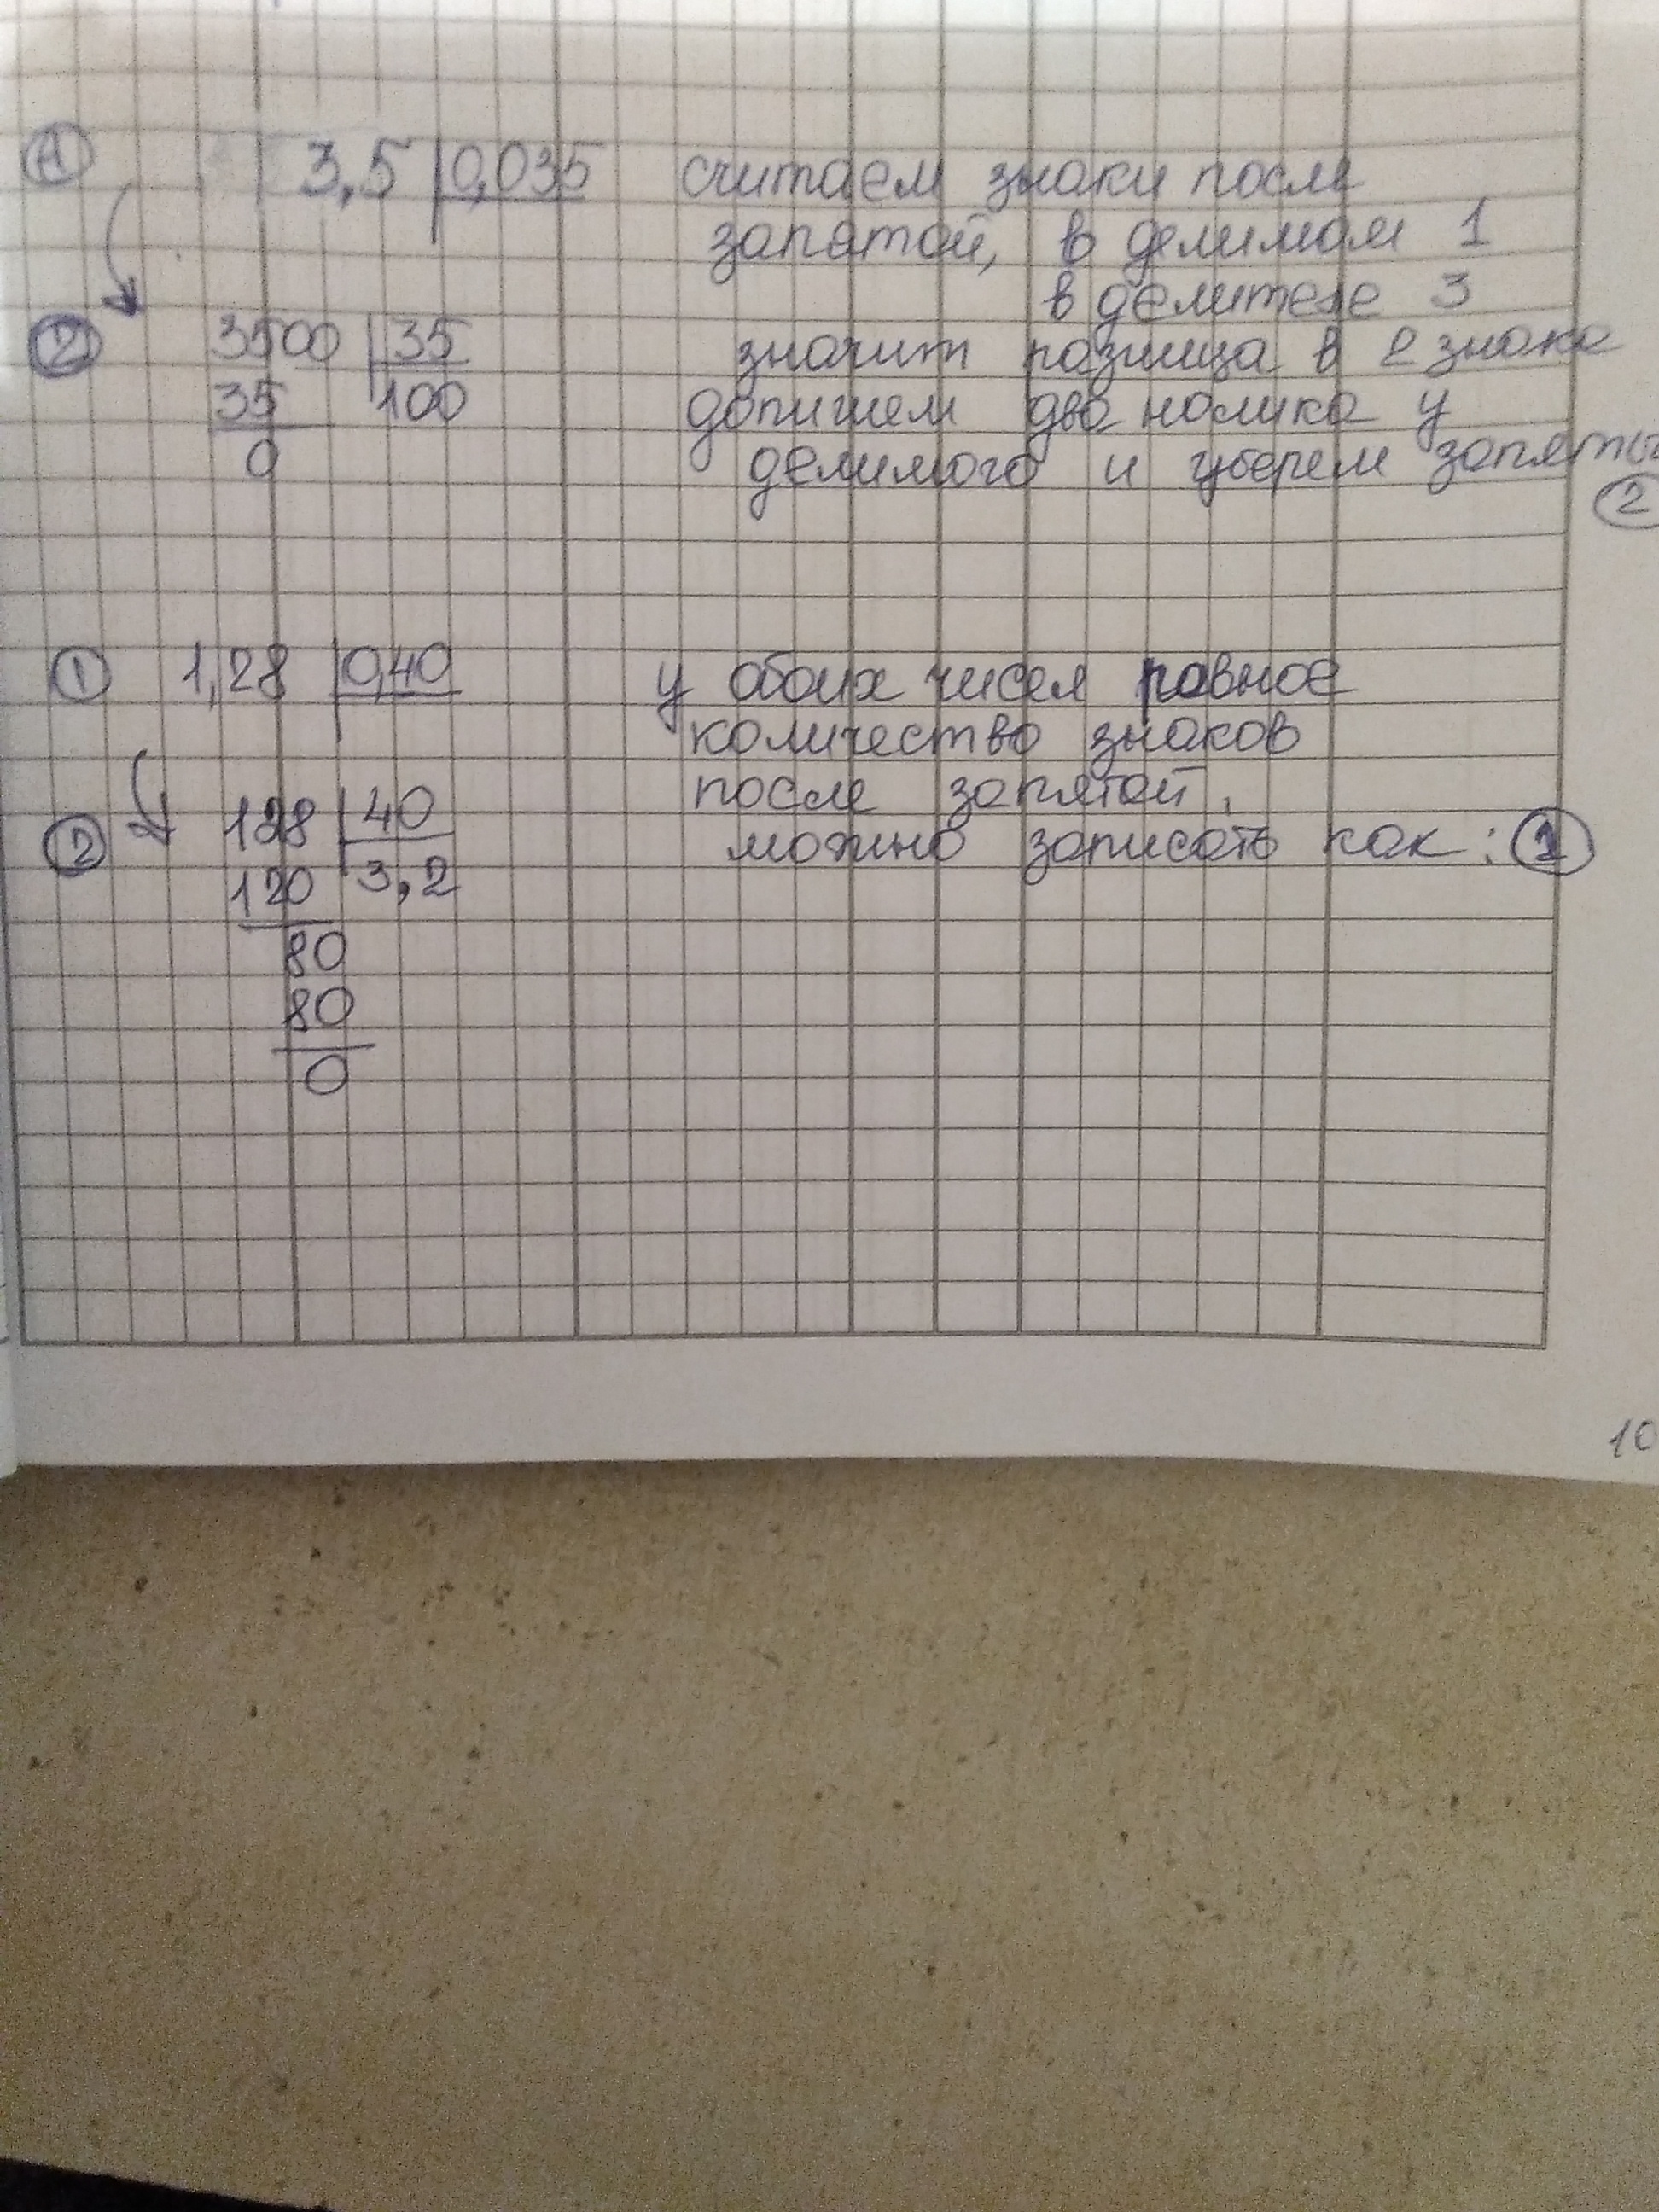 ① 3,5 | 0,035 считаем знаки после
запятой, в делимом 1
в делителе 3
② 3500 | 35 значит разница в 2 знака
35 100 допишем два нолика у
0 делимого и уберем запяты
②
① 1,28 | 0,40 у обоих чисел равное
количество знаков
после запятой,
② 128 | 40 можно записать как: ②
120 3,2
80
80
0
10